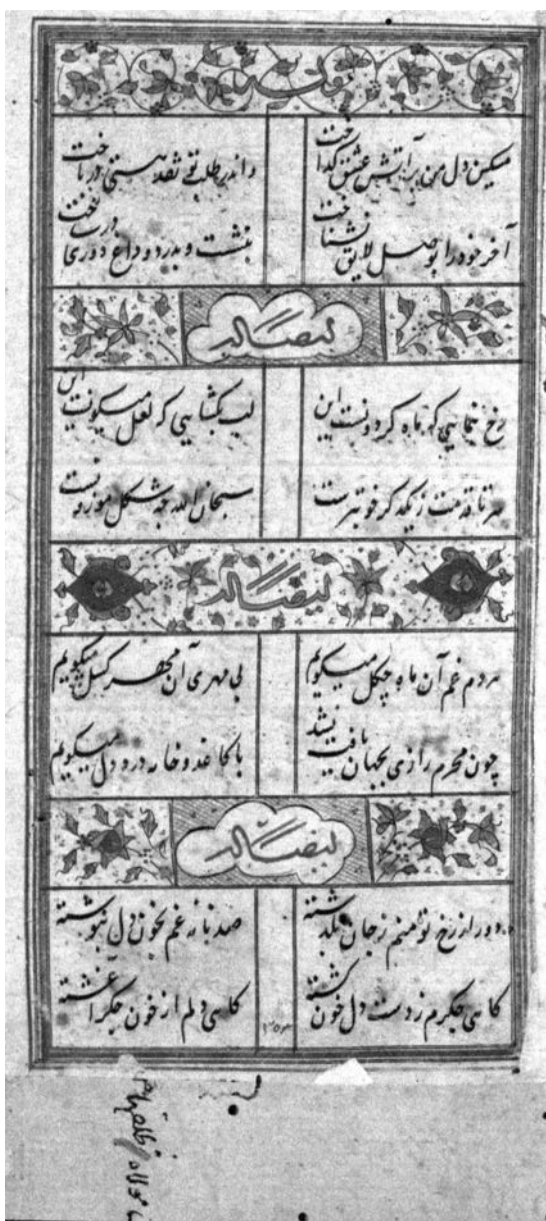 وله
مسکین دل من بر آتش عشق گداخت و اندر طلب تو نقد هستی در باخت
آخر خود را بوصل لایق نشناخت بنشست و بدرد و داغ دوری در ساخت
ایضاً له
رخ بنمایی که ماه گردونست این لب بگشایی که لعل میگونست این
سر تا قدمت زیکدگر خوبترست سبحان الله چه شکل موزونست
ایضاً له
هردم غم آن ماه چگل میگویم بی مهری آن مهر گسل میگویم
چون محرم رازی بجهان یافت نشد با کاغذ و خامه درد دل میگویم
ایضاً له
دور از رخ تو منم ز جان بگذشته صد نامه غم بخون دل بنوشته
گاهی جگرم ز دست دل خون گشته گاهی دلم از خون جگر آغشته